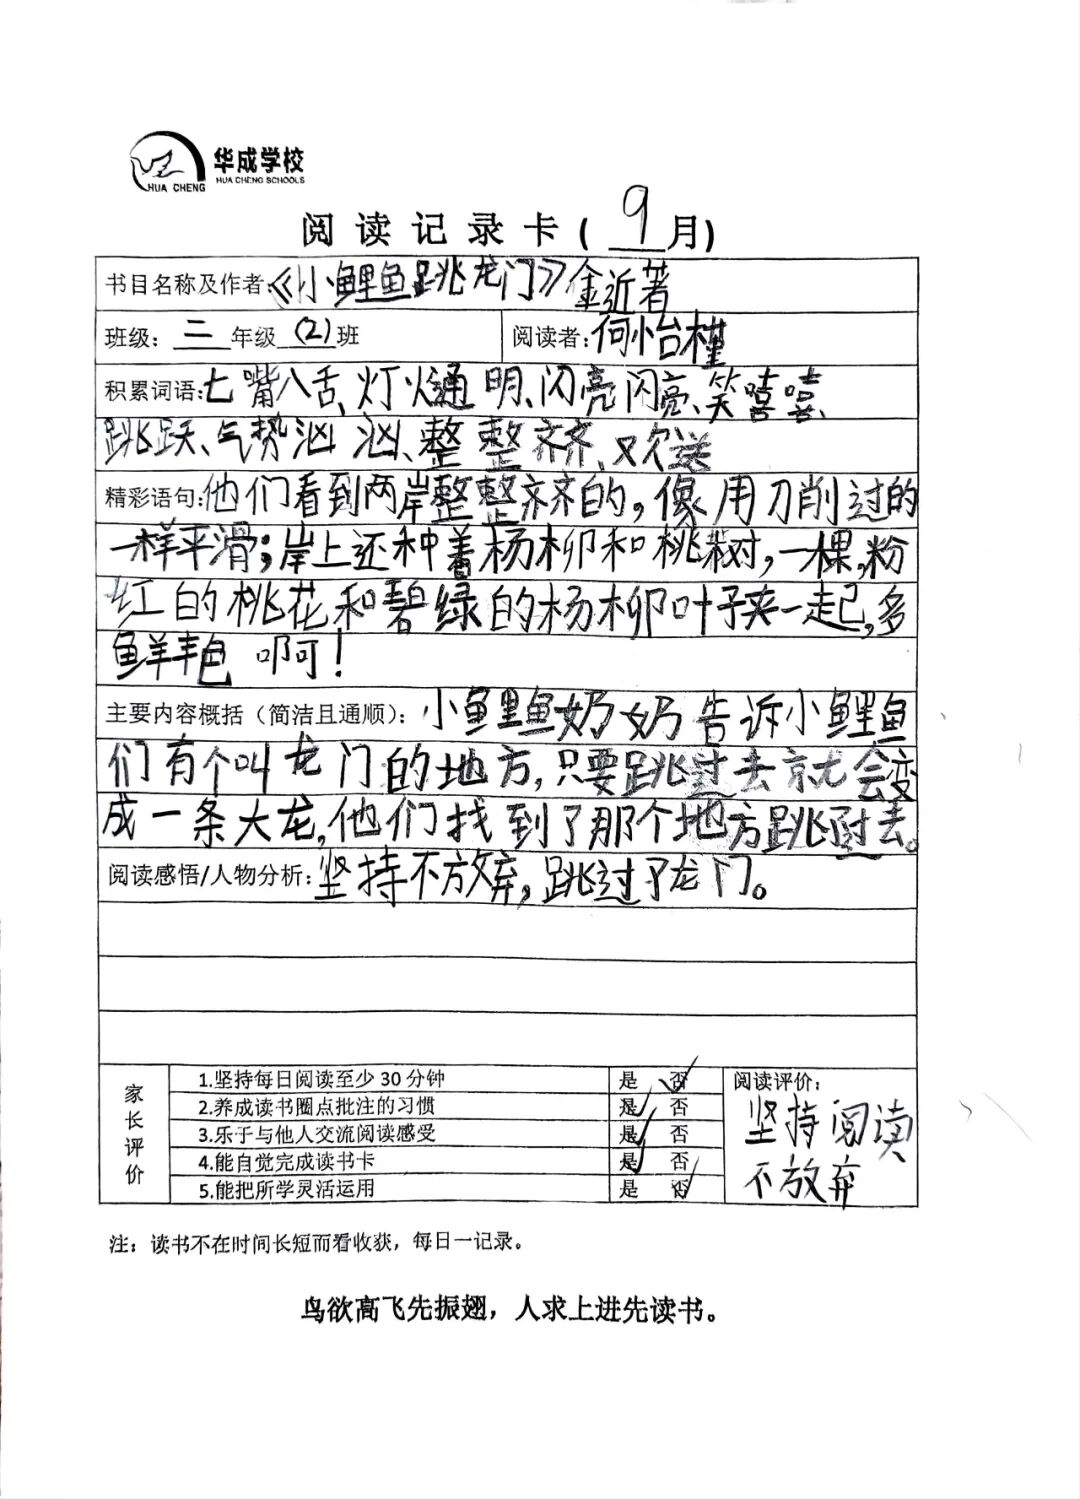 华成学校
HUA CHENG SCHOOLS
HUA CHENG
阅读记录卡(9月)
书目名称及作者:《小鲤鱼跳龙门》金近著
班级:二年级(2)班 阅读者:何怡槿
积累词语:七嘴八舌、灯火通明、闪亮闪亮、笑嘻嘻、
跳跃、气势汹汹、整整齐齐、又欢送
精彩语句:他们看到两岸整整齐齐的,像用刀削过的
一样平滑;岸上还种着杨柳和桃树,一棵,粉
红的桃花和碧绿的杨柳叶子夹一起,多
鲜艳 啊!
主要内容概括(简洁且通顺):小鲤鱼奶奶告诉小鲤鱼
们有个叫龙门的地方,只要跳过去就会变
成一条大龙,他们找到了那个地方跳过去。
阅读感悟/人物分析:坚持不放弃,跳过了龙门。
家长评价
1.坚持每日阅读至少30分钟 是 否
2.养成读书圈点批注的习惯 是 否
3.乐于与他人交流阅读感受 是 否
4.能自觉完成读书卡 是 否
5.能把所学灵活运用 是 否
阅读评价:
坚持阅读
不放弃
注:读书不在时间长短而看收获,每日一记录。
鸟欲高飞先振翅,人求上进先读书。